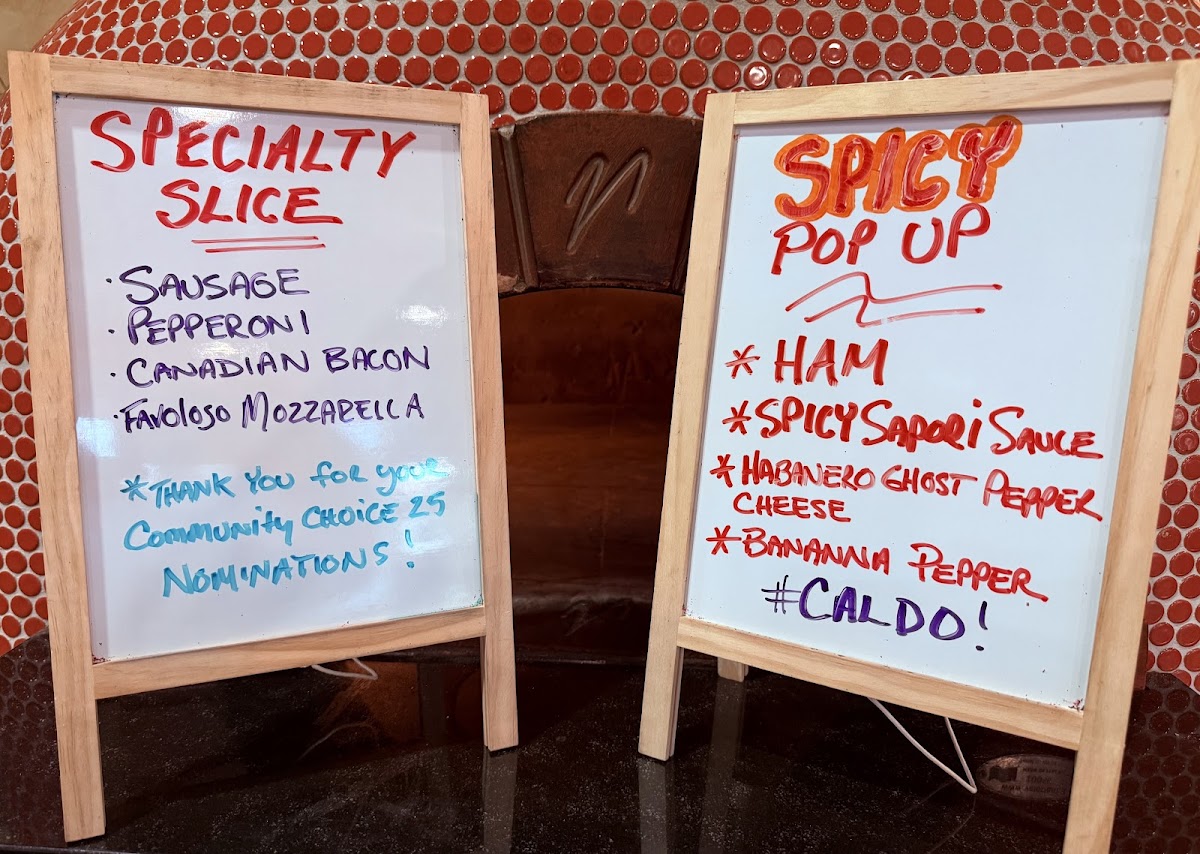 SPECIALTY
SLICE
· SAUSAGE
· PEPPERONI
· CANADIAN BACON
· FAVOLOSO MOZZARELLA
* THANK YOU for your
COMMUNITY CHOICE 25
NOMINATIONS!
SPICY
POP UP
* HAM
* SPICY SAPORI SAUCE
* HABANERO GHOST PEPPER
CHEESE
* BANANNA PEPPER
#CALDO!